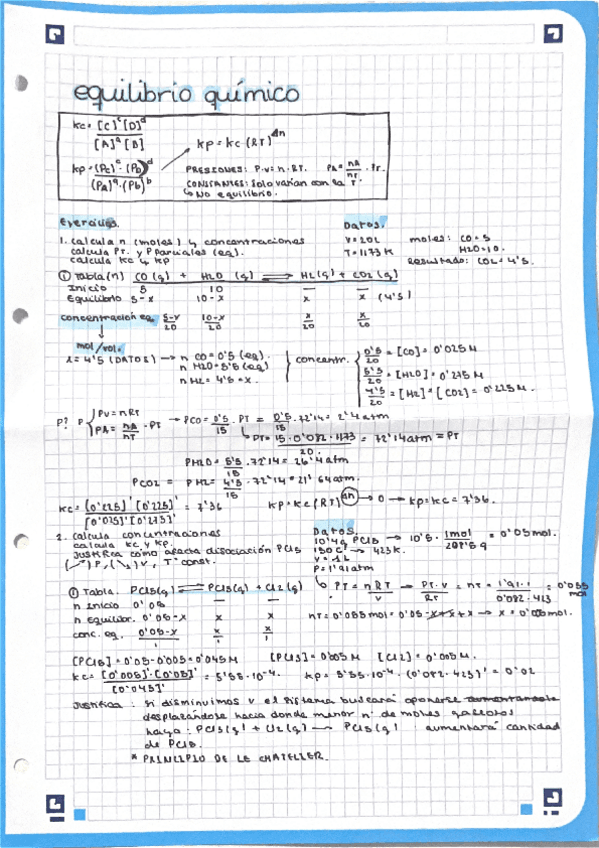 equilibrio químico
Kc = [C]^c [D]^d / [A]^a [B]
Kp = Kc·(RT)^Δn
Kp = (Pc)^c · (PD)^d / (PA)^a · (PB)^b
PRESIONES: P·V = n·RT. PA = nA/nT · PT.
CONSTANTES: Solo varían con la T.
↳ No equilibrio.
Ejercicios.
Datos.
1. Calcula n (moles) y concentraciones
calcula PT. y P parciales (eq).
calcula Kc y Kp
V = 20L
T = 1173 K
moles: CO = 5
H2O = 10.
Resultado: CO2 = 4'5.
① Tabla (n) CO (g) + H2O (g) ⇌ H2 (g) + CO2 (g)
Inicio 5 10 — —
Equilibrio 5-x 10-x x x (4'5)
concentración eq. 5-x/20 10-x/20 x/20 x/20
↓
mol/vol.
x = 4'5 (DATOS) → n CO = 0'5 (eq).
n H2O = 5'5 (eq)
n H2 = 4'5 = x.
concentr.
0'5/20 = [CO] = 0'025 M
5'5/20 = [H2O] = 0'275 M
4'5/20 = [H2] = [CO2] = 0'225 M.
P? P { PV = nRT
PA = nA/nT · PT
→ PCO = 0'5/15 · PT = 0'5/15 · 72'14 = 2'4 atm
↳ PT = 15 · 0'082 · 1173 / 20 = 72'14 atm = PT
PH2O = 5'5/15 · 72'14 = 26'4 atm
PCO2 = PH2 = 4'5/15 · 72'14 = 21'64 atm.
Kc = [0'225]' [0'225]' / [0'025]' [0'275]' = 7'36
Kp = Kc (RT)^Δn → 0 → Kp = Kc = 7'36.
2. Calcula concentraciones
calcula Kc y Kp.
Justifica como afecta disociación PCl5
(↗) P, (↘) V, T const.
Datos.
10'4g PCl5 → 10'4 · 1mol / 208'5 g = 0'05 mol.
150 C° → 423 K.
V = 1 L
P = 1'91 atm
↳ PT = nRT/V → PT·V/RT = nT = 1'91·1 / 0'082·423 = 0'055 mol
① Tabla. PCl5 (g) ⇌ PCl3 (g) + Cl2 (g)
n Inicio 0'05 — —
n equilibr. 0'05-x x x
conc. eq. 0'05-x/1 x/1 x/1
nT = 0'055 mol = 0'05 - x + x + x → x = 0'005 mol.
[PCl5] = 0'05 - 0'005 = 0'045 M [PCl3] = 0'005 M [Cl2] = 0'005 M.
Kc = [0'005]' · [0'005]' / [0'045]' = 5'55·10⁻⁴. Kp = 5'55·10⁻⁴ · (0'082·423)' = 0'02
Justifica: Si disminuimos V el sistema buscará oponerse
desplazándose hacia donde menor nº de moles gaseosos
haya: PCl3 (g) + Cl2 (g) → PCl5 (g) : aumentará cantidad
de PCl5.
* PRINCIPIO DE LE CHATELIER.